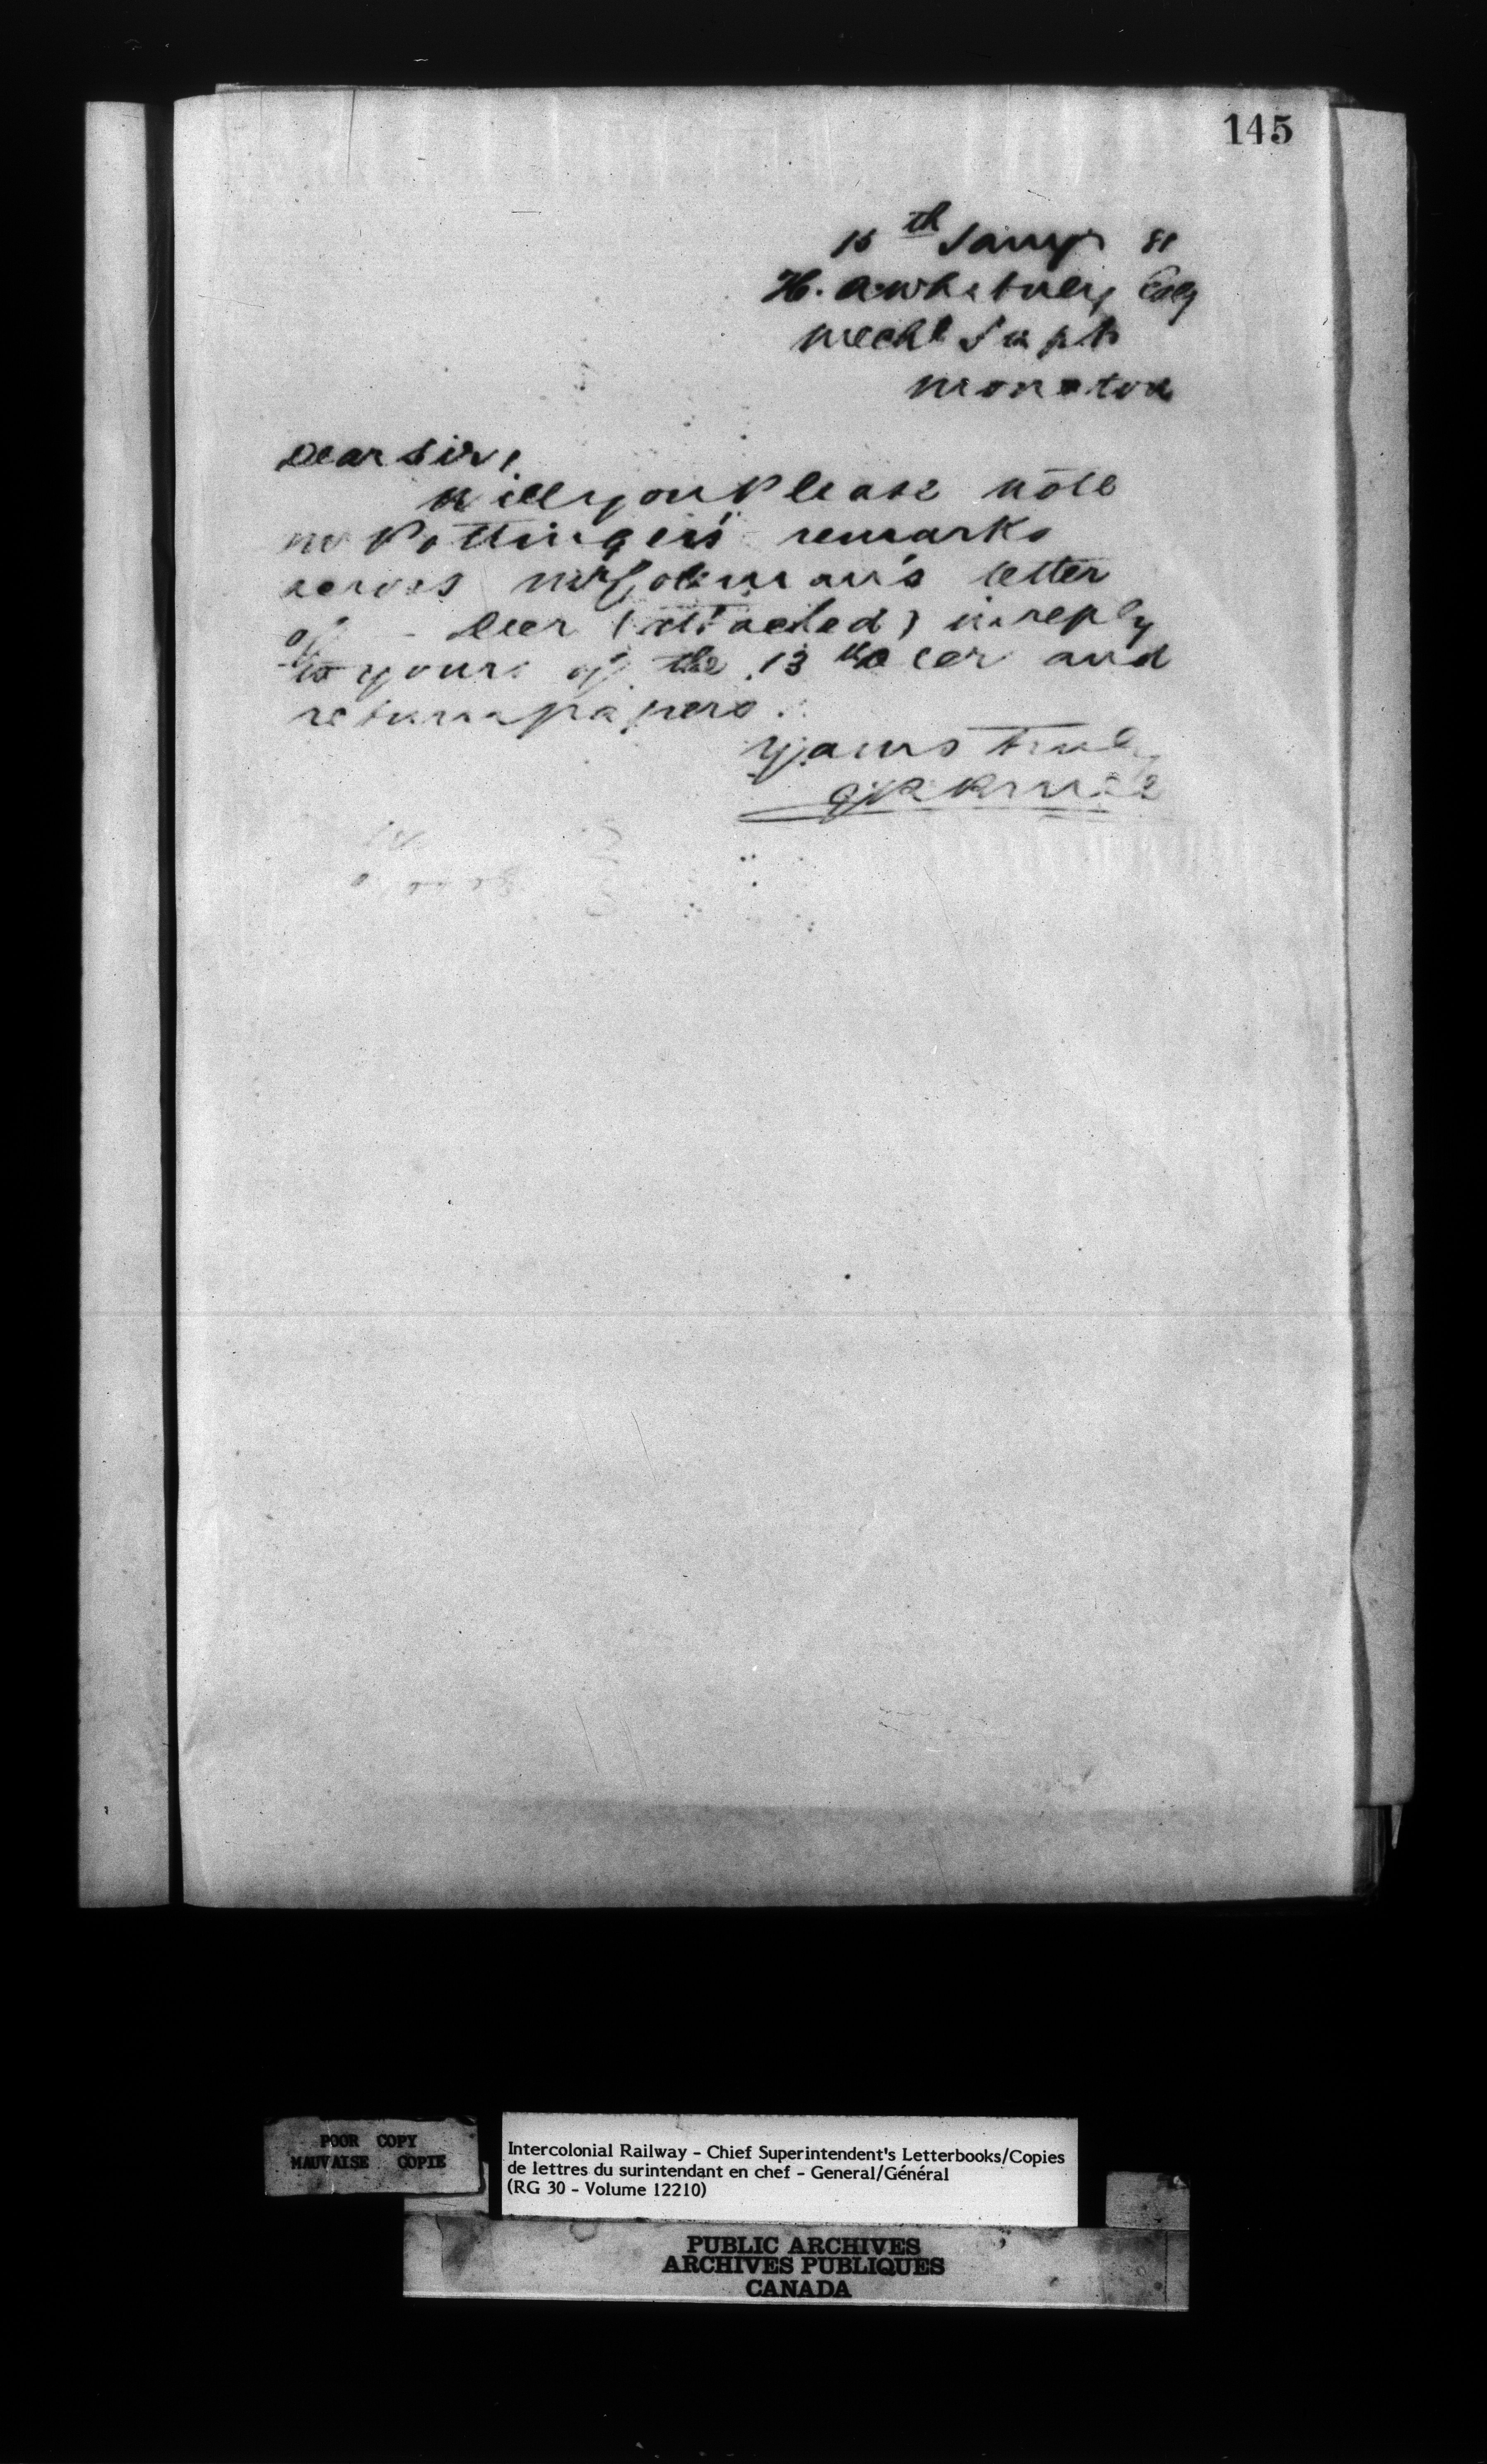 145
15th Jany 81
H. A. Whitney Esq
Mechl Supt
Moncton
Dear Sir,
Will you Please note
Mr Pottinger's remarks
across Mr Coleman's letter
of - Decr (attached) in reply
to yours of the 13th Decr and
return papers.
Yours truly
POOR COPY
MAUVAISE COPIE
Intercolonial Railway - Chief Superintendent's Letterbooks/Copies
de lettres du surintendant en chef - General/Général
(RG 30 - Volume 12210)
PUBLIC ARCHIVES
ARCHIVES PUBLIQUES
CANADA